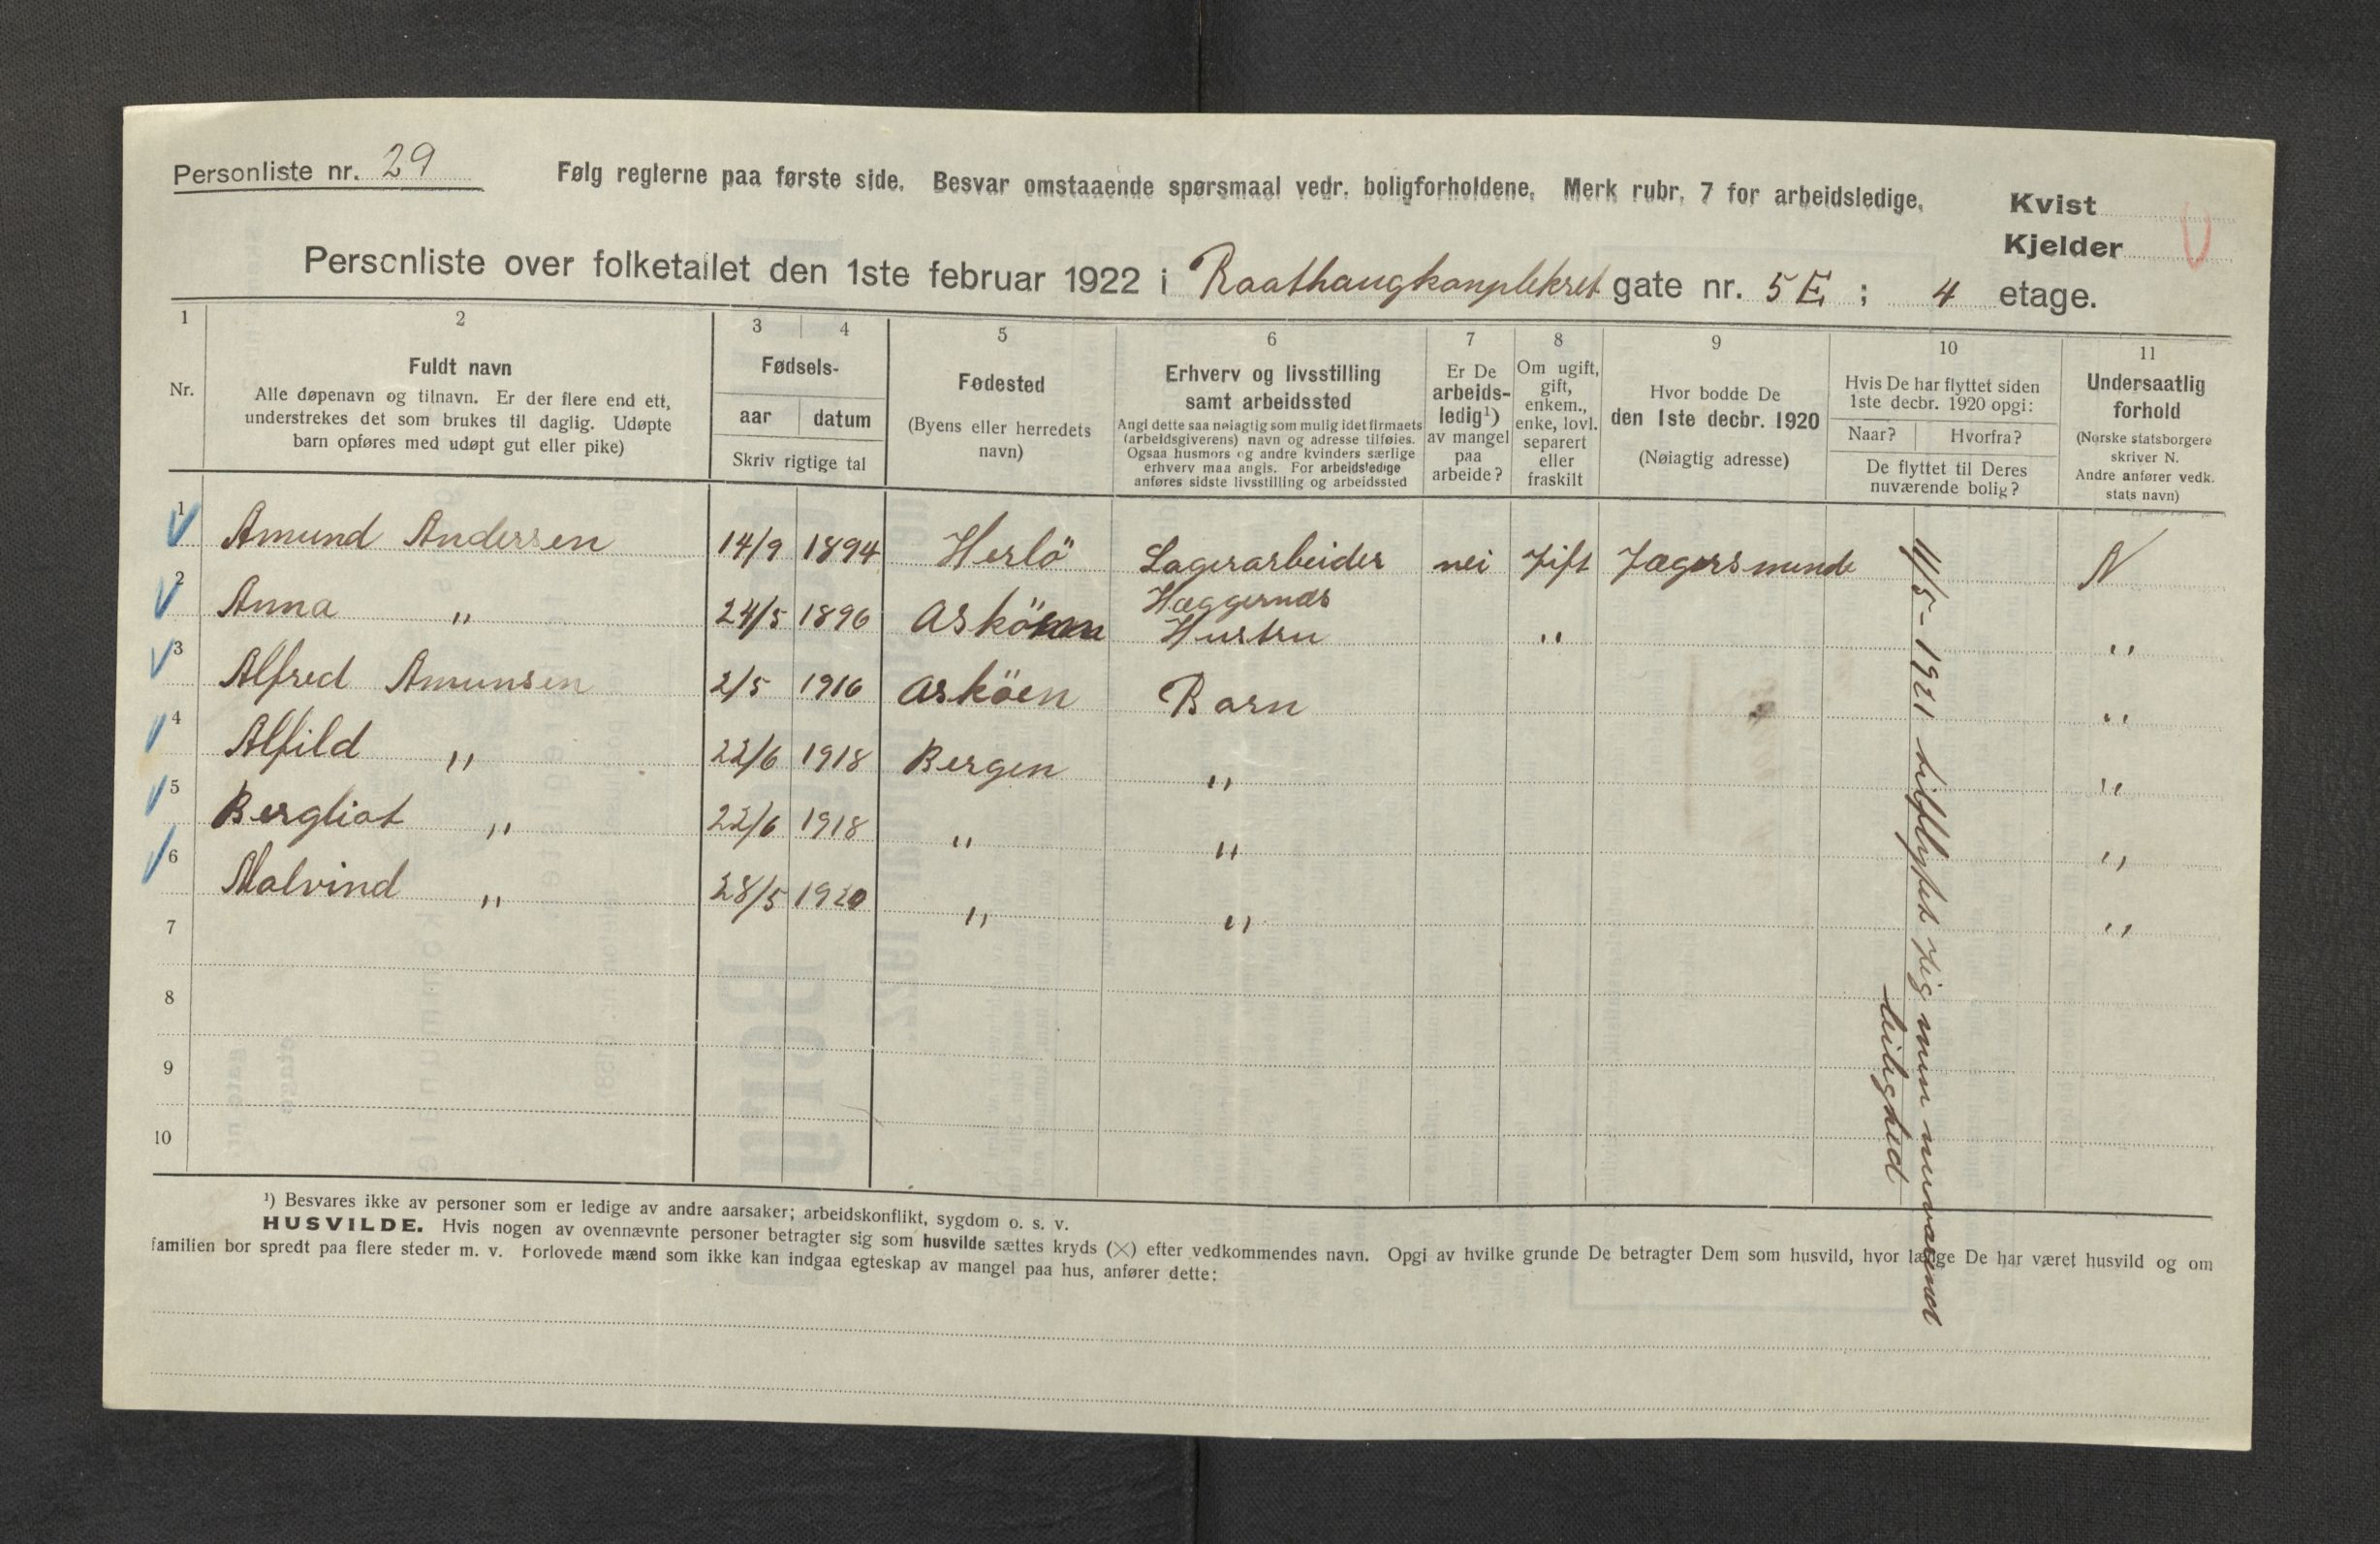 Personliste nr. 29
Følg reglerne paa første side. Besvar omstaaende spørsmaal vedr. boligforholdene. Merk rubr. 7 for arbeidsledige.
Kvist
Kjelder
Personliste over folketallet den 1ste februar 1922 i Raathaugkomplekset gate nr. 5 E ; 4 etage.
1 2 3 4 5 6 7 8 9 10 11
Nr.
Fuldt navn
Alle døpenavn og tilnavn. Er der flere end ett,
understrekes det som brukes til daglig. Udøpte
barn opføres med udøpt gut eller pike)
Fødsels-
aar datum
Skriv rigtige tal
Fødested
(Byens eller herredets
navn)
Erhverv og livsstilling
samt arbeidssted
Angi dette saa nøiagtig som mulig idet firmaets
(arbeidsgiverens) navn og adresse tilføies.
Ogsaa husmors og andre kvinders særlige
erhverv maa angis. For arbeidsledige
anføres sidste livsstilling og arbeidssted
Er De
arbeids-
ledig¹)
av mangel
paa
arbeide?
Om ugift,
gift,
enkem.,
enke, lovl.
separert
eller
fraskilt
Hvor bodde De
den 1ste decbr. 1920
(Nøiagtig adresse)
Hvis De har flyttet siden
1ste decbr. 1920 opgi:
Naar? Hvorfra?
De flyttet til Deres
nuværende bolig?
Undersaatlig
forhold
(Norske statsborgere
skriver N.
Andre anfører vedk.
stats navn)
1 Amund Andersen 14/9 1894 Herlö Lagerarbeider nei Gift Jægersminde N
Hæggernæs
2 Anna " 24/5 1896 Asköen Hustru " "
3 Alfred Amunsen 2/5 1916 Asköen Barn "
4 Alfild " 22/6 1918 Bergen " "
5 Bergliot " 22/6 1918 " " "
6 Malvind " 28/5 1920 " " "
7
8
9
10
11/5-1921 tilflyttet jeg min nuværend
leilighed
¹) Besvares ikke av personer som er ledige av andre aarsaker; arbeidskonflikt, sygdom o. s. v.
HUSVILDE. Hvis nogen av ovennævnte personer betragter sig som husvilde sættes kryds (×) efter vedkommendes navn. Opgi av hvilke grunde De betragter Dem som husvild, hvor længe De har været husvild og om
familien bor spredt paa flere steder m. v. Forlovede mænd som ikke kan indgaa egteskap av mangel paa hus, anfører dette: